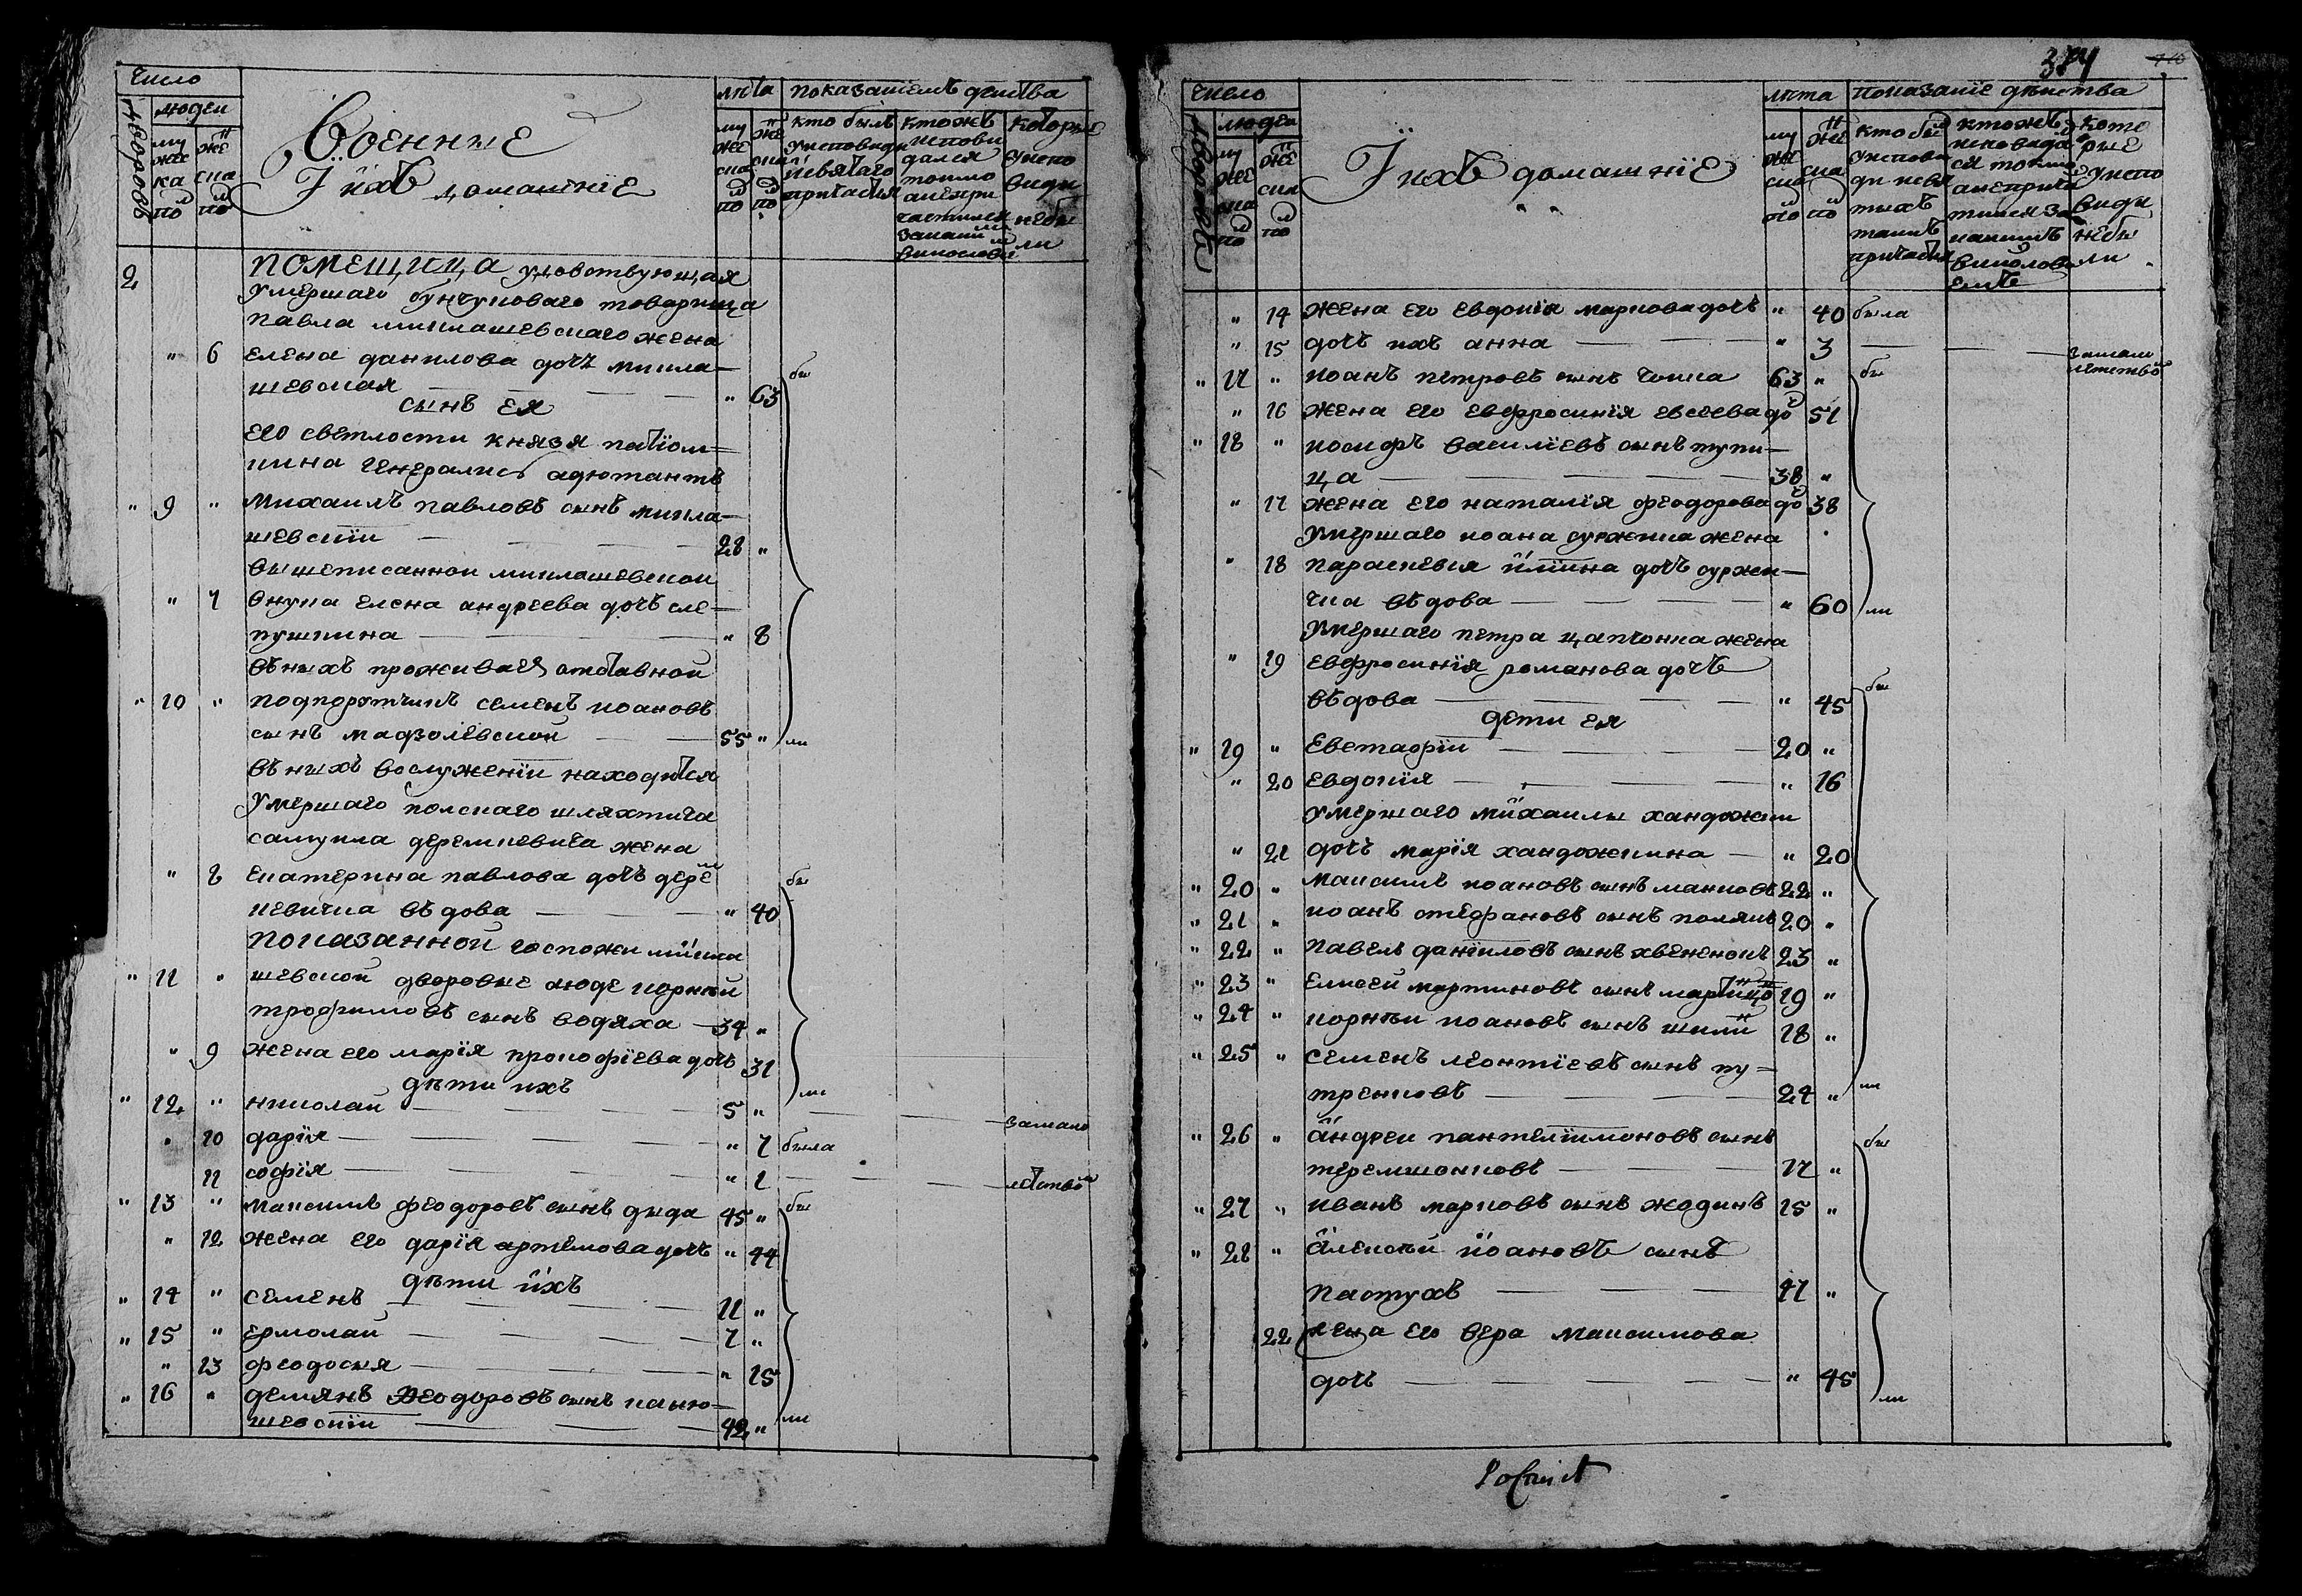 Число
лѣта показанiемъ действа
людеи
дворовъ
му жес ка по
же ска по
Военные
му жес ка по
же ска по
кто былъ у исповеди и святаго причастия
кто жъ исповедался токмо а не причастился за каким винословием
которые у исповеди не были
I ихъ домашнiе
2 помещица удовствующая
умершаго бунчуковаго товарища
павла миклашевскаго жена
" 6 елена данилова дочъ микла-
шевская " 63 бы
сынъ ея
его светлости князя патiом-
кина генералис адютантъ
" 9 " михаилъ павловъ сынъ микла-
шевскiи 28 "
вышеписанной миклашевской
" 7 внука елена андреева дочъ сле-
пушкина " 8
въ нихъ проживает отставной
" 10 " подпорутчикъ семенъ иоановъ
сынъ мафзолевской 55 " ли
въ нихъ во служенiи находится
умершаго полскаго шляхтича
самуила деремкевича жена
" 8 екатерина павлова дочъ дерем бы
кевичка въдова " 40
показанной госпожи микла
" 11 " шевской дворовые люде корнѣй
трофимовъ сынъ водяха 34 "
" 9 жена его марiя прокофiева дочъ 31
дѣти ихъ ли
" 12 " николаи 5 " замало
" 10 дарiя " 7 была
11 софiя " 1 летством
" 13 " максимъ феодоровъ сынъ дида 45 " бы
" 12 жена его дарiя артемова дочъ " 44
дѣти ихъ
" 14 " семенъ 11 "
" 15 " ермолаи 7 "
" 13 феодосия " 15
" 16 " демянъ феодоровъ сынъ каню-
шевскiи 42 " ли
374
Число
лѣта показанiе дѣиства
людеи
дворовъ
му жес ка по
же ска по
I ихъ домашнiе
му жес ка по
же ска по
кто был у исповеди и святых таинъ причастия
кто жъ исповедался токмо а не причастился за какимъ винословиемъ
которые у исповеди не были
" 14 жена его евдокiя маркова дочъ " 40 была
" 15 дочъ ихъ анна " 3 замалолетством
" 17 " иоанъ петровъ сынъ чоика 63 " бы
" 16 жена его евфросинiя евсеева до 51
" 18 " иосифъ василiевъ сынъ тупи-
ца 38 "
" 17 жена его наталiя феодорова до 38
умершаго иоана суржика жена
" 18 параскевия iлiина дочъ суржи-
чка въдова " 60 ли
умершаго петра цапчонка жена
" 19 евфросинiя романова дочъ
въдова " 45 бы
дети ея
" 19 " евстафiи 20 "
" 20 евдокiя " 16
умершаго михаилы хандожки
" 21 дочъ марiя хандожкина " 20
" 20 " максимъ иоановъ сынъ манковъ 22 "
" 21 " иоанъ стефановъ сынъ полякъ 20 "
" 22 " павелъ данiиловъ сынъ хвененокъ 23 "
" 23 " елисей мартиновъ сынъ мартинцо 19 "
" 24 " корнѣи иоановъ сынъ шили 18 "
" 25 " семенъ леонтiевъ сынъ ку-
тренковъ 24 " ли
" 26 " андреи пантелiимоновъ сынъ бы
теремшонковъ 17 "
" 27 " иванъ марковъ сынъ жадинъ 15 "
" 28 " алексѣй iоановъ сынъ
пастухъ 47 "
22 жена его вера максимова
дочъ " 45 ли